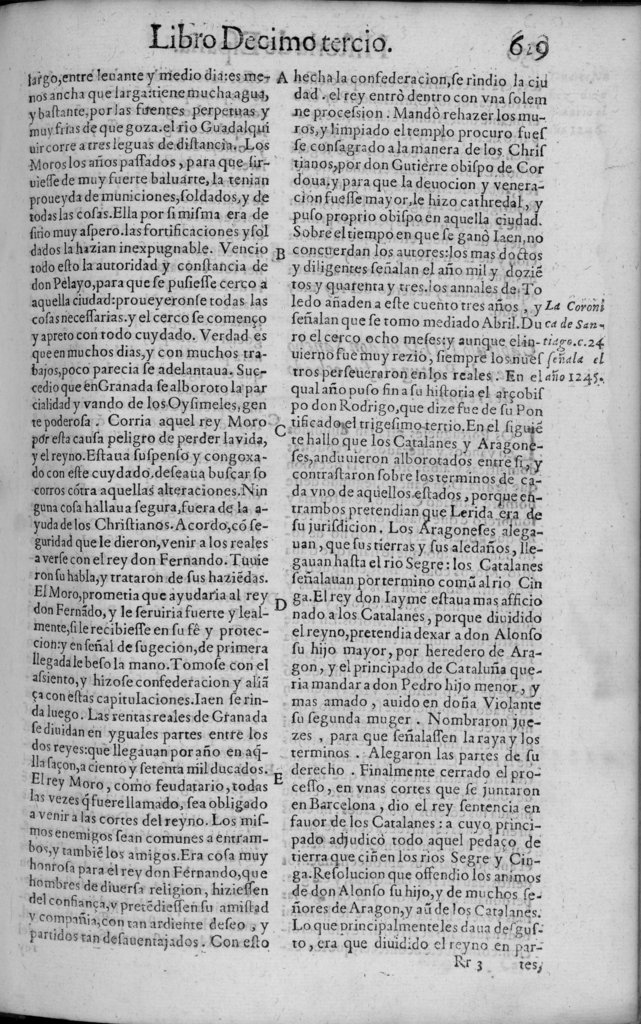 Libro Decimo tercio. 619
largo,entre leuante y medio dia:es me-
nos ancha que larga:tiene mucha agua,
y bastante,por las fuentes perpetuas y
muy frias de que goza.el rio Guadalqui
uir corre a tres leguas de distancia. Los
Moros los años passados, para que sir-
uiesse de muy fuerte baluarte, la tenian
proueyda de municiones,soldados,y de
todas las cosas.Ella por si misma era de
sitio muy aspero.las fortificaciones y sol
dados la hazian inexpugnable. Vencio
todo esto la autoridad y constancia de
don Pelayo,para que se pusiesse cerco a
aquella ciudad:proueyeronse todas las
cosas necessarias.y el cerco se començo
y apreto con todo cuydado. Verdad es
que en muchos dias,y con muchos tra-
bajos,poco parecia se adelantaua. Suc-
cedio que en Granada se alboroto la par
cialidad y vando de los Oysimeles,gen
te poderosa. Corria aquel rey Moro
por esta causa peligro de perder la vida,
y el reyno.Estaua suspenso y congoxa-
do con este cuydado.deseaua buscar so
corros cótra aquellas alteraciones.Nin
guna cosa hallaua segura,fuera de la a-
yuda de los Christianos.Acordo,có se-
guridad que le dieron,venir a los reales
a verse con el rey don Fernando. Tuuie
ron su habla,y trataron de sus haziédas.
El Moro,prometia que ayudaria al rey
don Fernãdo,y le seruiria fuerte y leal-
mente,si le recibiesse en su fê y protec-
cion:y en señal de sugecion,de primera
llegada le beso la mano.Tomose con el
assiento,y hizose confederacion y aliã
ça con estas capitulaciones.Iaen se rin-
da luego. Las rentas reales de Granada
se diuidan en yguales partes entre los
dos reyes:que llegauan por año en aq̃-
lla saçon,a ciento y setenta mil ducados.
El rey Moro, como feudatario, todas
las vezes q̃ fuere llamado, sea obligado
a venir a las cortes del reyno. Los mis-
mos enemigos sean comunes a entram-
bos,y tambié los amigos.Era cosa muy
honrosa para el rey don Fernando,que
hombres de diuersa religion, hiziessen
del confiança,y pretédiessen su amistad
y compañia,con tan ardiente deseo , y
partidos tan desauentajados. Con esto
A
B
C
D
E
hecha la confederacion,se rindio la ciu
dad. el rey entrò dentro con vna solem
ne procession. Mandò rehazer los mu-
ros,y limpiado el templo procuro fuess
se consagrado a la manera de los Chris
tianos,por don Gutierre obispo de Cor
doua,y para que la deuocion y venera-
cion fuesse mayor,le hizo cathredal, y
puso proprio obispo en aquella ciudad.
Sobre el tiempo en que se ganò Iaen,no
concuerdan los autores:los mas doctos
y diligentes señalan el año mil y dozié-
tos y quarenta y tres.los annales de To
ledo añaden a este cuento tres años , y
señalan que se tomo mediado Abril.Du
ro el cerco ocho meses:y aunque el in-
uierno fue muy rezio, siempre los nues
tros perseueraron en los reales. En el
qual año puso fin a su historia el arçobis
po don Rodrigo,que dize fue de su Pon
tificado el trigesimo tertio.En el siguié
te hallo que los Catalanes y Aragone-
ses,anduuieron alborotados entre si, y
contrastaron sobre los terminos de ca-
da vno de aquellos estados, porque en-
trambos pretendian que Lerida era de
su jurisdicion. Los Aragoneses alega-
uan, que sus tierras y sus aledaños, lle-
gauan hasta el rio Segre: los Catalanes
señalauan por termino comũ al rio Cin
ga.El rey don Iayme estaua mas afficio
nado a los Catalanes, porque diuidido
el reyno,pretendia dexar a don Alonso
su hijo mayor, por heredero de Ara-
gon, y el principado de Cataluña que-
ria mandar a don Pedro hijo menor, y
mas amado, auido en doña Violante
su segunda muger. Nombraron jue-
zes , para que señalassen la raya y los
terminos . Alegaron las partes de su
derecho . Finalmente cerrado el pro-
cesso, en vnas cortes que se juntaron
en Barcelona , dio el rey sentencia en
fauor de los Catalanes : a cuyo princi-
pado adjudicò todo aquel pedaço de
tierra que ciñen los rios Segre y Cin-
ga.Resolucion que offendio los animos
de don Alonso su hijo,y de muchos se-
ñores de Aragon,y aũ de los Catalanes.
Lo que principalmente les daua desgus-
to, era que diuidido el reyno en par-
La Coroni
ca de San-
tiago.c.24
señala el
año 1245.
Rr 3 tes,